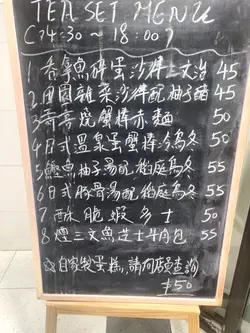 TEA SET MENU
(14:30 ~ 18:00)
1 香拿魚碎蛋沙律三文治 45
2 田園雜菜沙律配柚子醋 45
3 哥哥燒蟹棒赤麵 50
4 日式溫泉蛋蟹棒冷烏冬 50
5 鰹魚柚子湯配稻庭烏冬 55
6 日式豚骨湯配稻庭烏冬 55
7 酥脆蝦多士 50
8 煙三文魚芝士牛角包 55
☆自家製蛋糕,請向店員查詢
$50